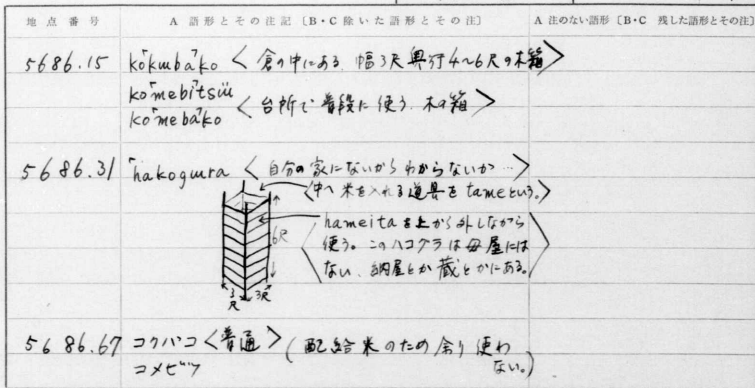 地点番号 A 語形とその注記〔B・C 除いた語形とその注〕 A 注のない語形〔B・C 残した語形とその注〕
5686.15 ko⌈kɯba⌉ko < 倉の中にある. 幅3尺 奥行4~6尺の木箱>
ko⌈mebi⌉tsïï
ko⌈meba⌉ko < 台所で 普段に使う. 木の箱 >
5686.31 ⌈hakogɯra < 自分の家にないからわからないが…>
<中へ米を入れる道具をtameという。>
hameitaを上から外しながら
使う。このハコグラは母屋には
ない、納屋とか蔵とかにある。
6尺
3尺 3尺
5686.67 コクバコ <普通> (配給米のため余り使わ
ない。)
コメビツ